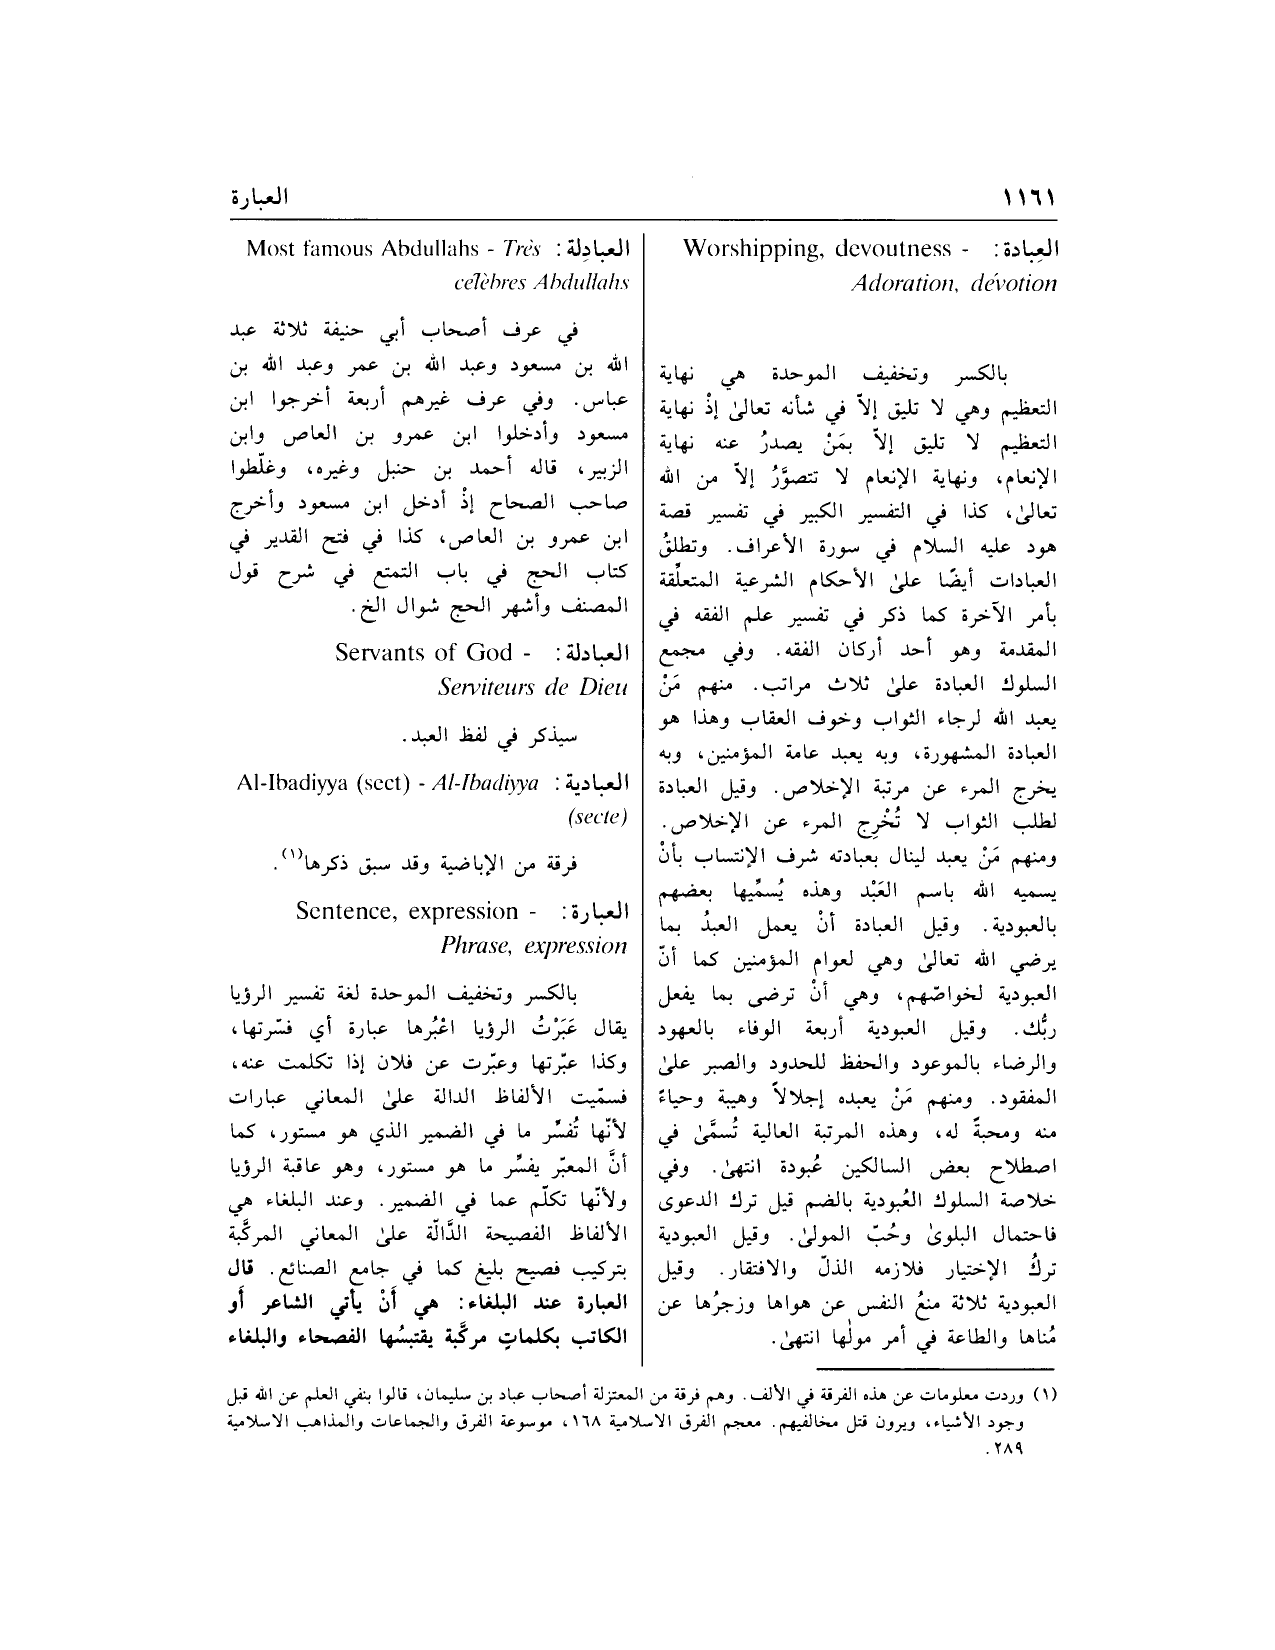 ١١٦١
العبارة
العِبادة: Worshipping, devoutness -
Adoration, dévotion
بالكسر وتخفيف الموحدة هي نهاية
التعظيم وهي لا تليق إلاّ في شأنه تعالىٰ إذْ نهاية
التعظيم لا تليق إلاّ بمَنْ يصدرُ عنه نهاية
الإنعام، ونهاية الإنعام لا تتصوَّرُ إلاّ من الله
تعالىٰ، كذا في التفسير الكبير في تفسير قصة
هود عليه السلام في سورة الأعراف. وتطلقُ
العبادات أيضًا علىٰ الأحكام الشرعية المتعلِّقة
بأمر الآخرة كما ذكر في تفسير علم الفقه في
المقدمة وهو أحد أركان الفقه. وفي مجمع
السلوك العبادة علىٰ ثلاث مراتب. منهم مَنْ
يعبد الله لرجاء الثواب وخوف العقاب وهذا هو
العبادة المشهورة، وبه يعبد عامة المؤمنين، وبه
يخرج المرء عن مرتبة الإخلاص. وقيل العبادة
لطلب الثواب لا تُخْرِج المرء عن الإخلاص.
ومنهم مَنْ يعبد لينال بعبادته شرف الإنتساب بأنْ
يسميه الله باسم العَبْد وهذه يُسمِّيها بعضهم
بالعبودية. وقيل العبادة أنْ يعمل العبدُ بما
يرضي الله تعالىٰ وهي لعوام المؤمنين كما أنّ
العبودية لخواصّهم، وهي أنْ ترضى بما يفعل
ربُّك. وقيل العبودية أربعة الوفاء بالعهود
والرضاء بالموعود والحفظ للحدود والصبر علىٰ
المفقود. ومنهم مَنْ يعبده إجلالاً وهيبة وحياءً
منه ومحبةً له، وهذه المرتبة العالية تُسمَّىٰ في
اصطلاح بعض السالكين عُبودة انتهىٰ. وفي
خلاصة السلوك العُبودية بالضم قيل ترك الدعوى
فاحتمال البلوىٰ وحُبّ المولىٰ. وقيل العبودية
تركُ الإختيار فلازمه الذلّ والافتقار. وقيل
العبودية ثلاثة منعُ النفس عن هواها وزجرُها عن
مُناها والطاعة في أمر مولٰها انتهىٰ.
العبادِلة: Most famous Abdullahs - Très
célèbres Abdullahs
في عرف أصحاب أبي حنيفة ثلاثة عبد
الله بن مسعود وعبد الله بن عمر وعبد الله بن
عباس. وفي عرف غيرهم أربعة أخرجوا ابن
مسعود وأدخلوا ابن عمرو بن العاص وابن
الزبير، قاله أحمد بن حنبل وغيره، وغلّطوا
صاحب الصحاح إذْ أدخل ابن مسعود وأخرج
ابن عمرو بن العاص، كذا في فتح القدير في
كتاب الحج في باب التمتع في شرح قول
المصنف وأشهر الحج شوال الخ.
العبادلة: Servants of God -
Serviteurs de Dieu
سيذكر في لفظ العبد.
العبادية: Al-Ibadiyya (sect) - Al-Ibadiyya
(secte)
فرقة من الإباضية وقد سبق ذكرها(١).
العبارة: Sentence, expression -
Phrase, expression
بالكسر وتخفيف الموحدة لغة تفسير الرؤيا
يقال عَبَرْتُ الرؤيا اعْبُرها عبارة أي فسّرتها،
وكذا عبّرتها وعبّرت عن فلان إذا تكلمت عنه،
فسمّيت الألفاظ الدالة علىٰ المعاني عبارات
لأنّها تُفسِّر ما في الضمير الذي هو مستور، كما
أنَّ المعبّر يفسِّر ما هو مستور، وهو عاقبة الرؤيا
ولأنّها تكلّم عما في الضمير. وعند البلغاء هي
الألفاظ الفصيحة الدَّالّة علىٰ المعاني المركَّبة
بتركيب فصيح بليغ كما في جامع الصنائع. قال
العبارة عند البلغاء: هي أَنْ يأتي الشاعر أو
الكاتب بكلماتٍ مركَّبة يقتبسُها الفصحاء والبلغاء
(١) وردت معلومات عن هذه الفرقة في الألف. وهم فرقة من المعتزلة أصحاب عباد بن سليمان، قالوا بنفي العلم عن الله قبل
وجود الأشياء، ويرون قتل مخالفيهم. معجم الفرق الاسلامية ١٦٨، موسوعة الفرق والجماعات والمذاهب الاسلامية
٢٨٩.